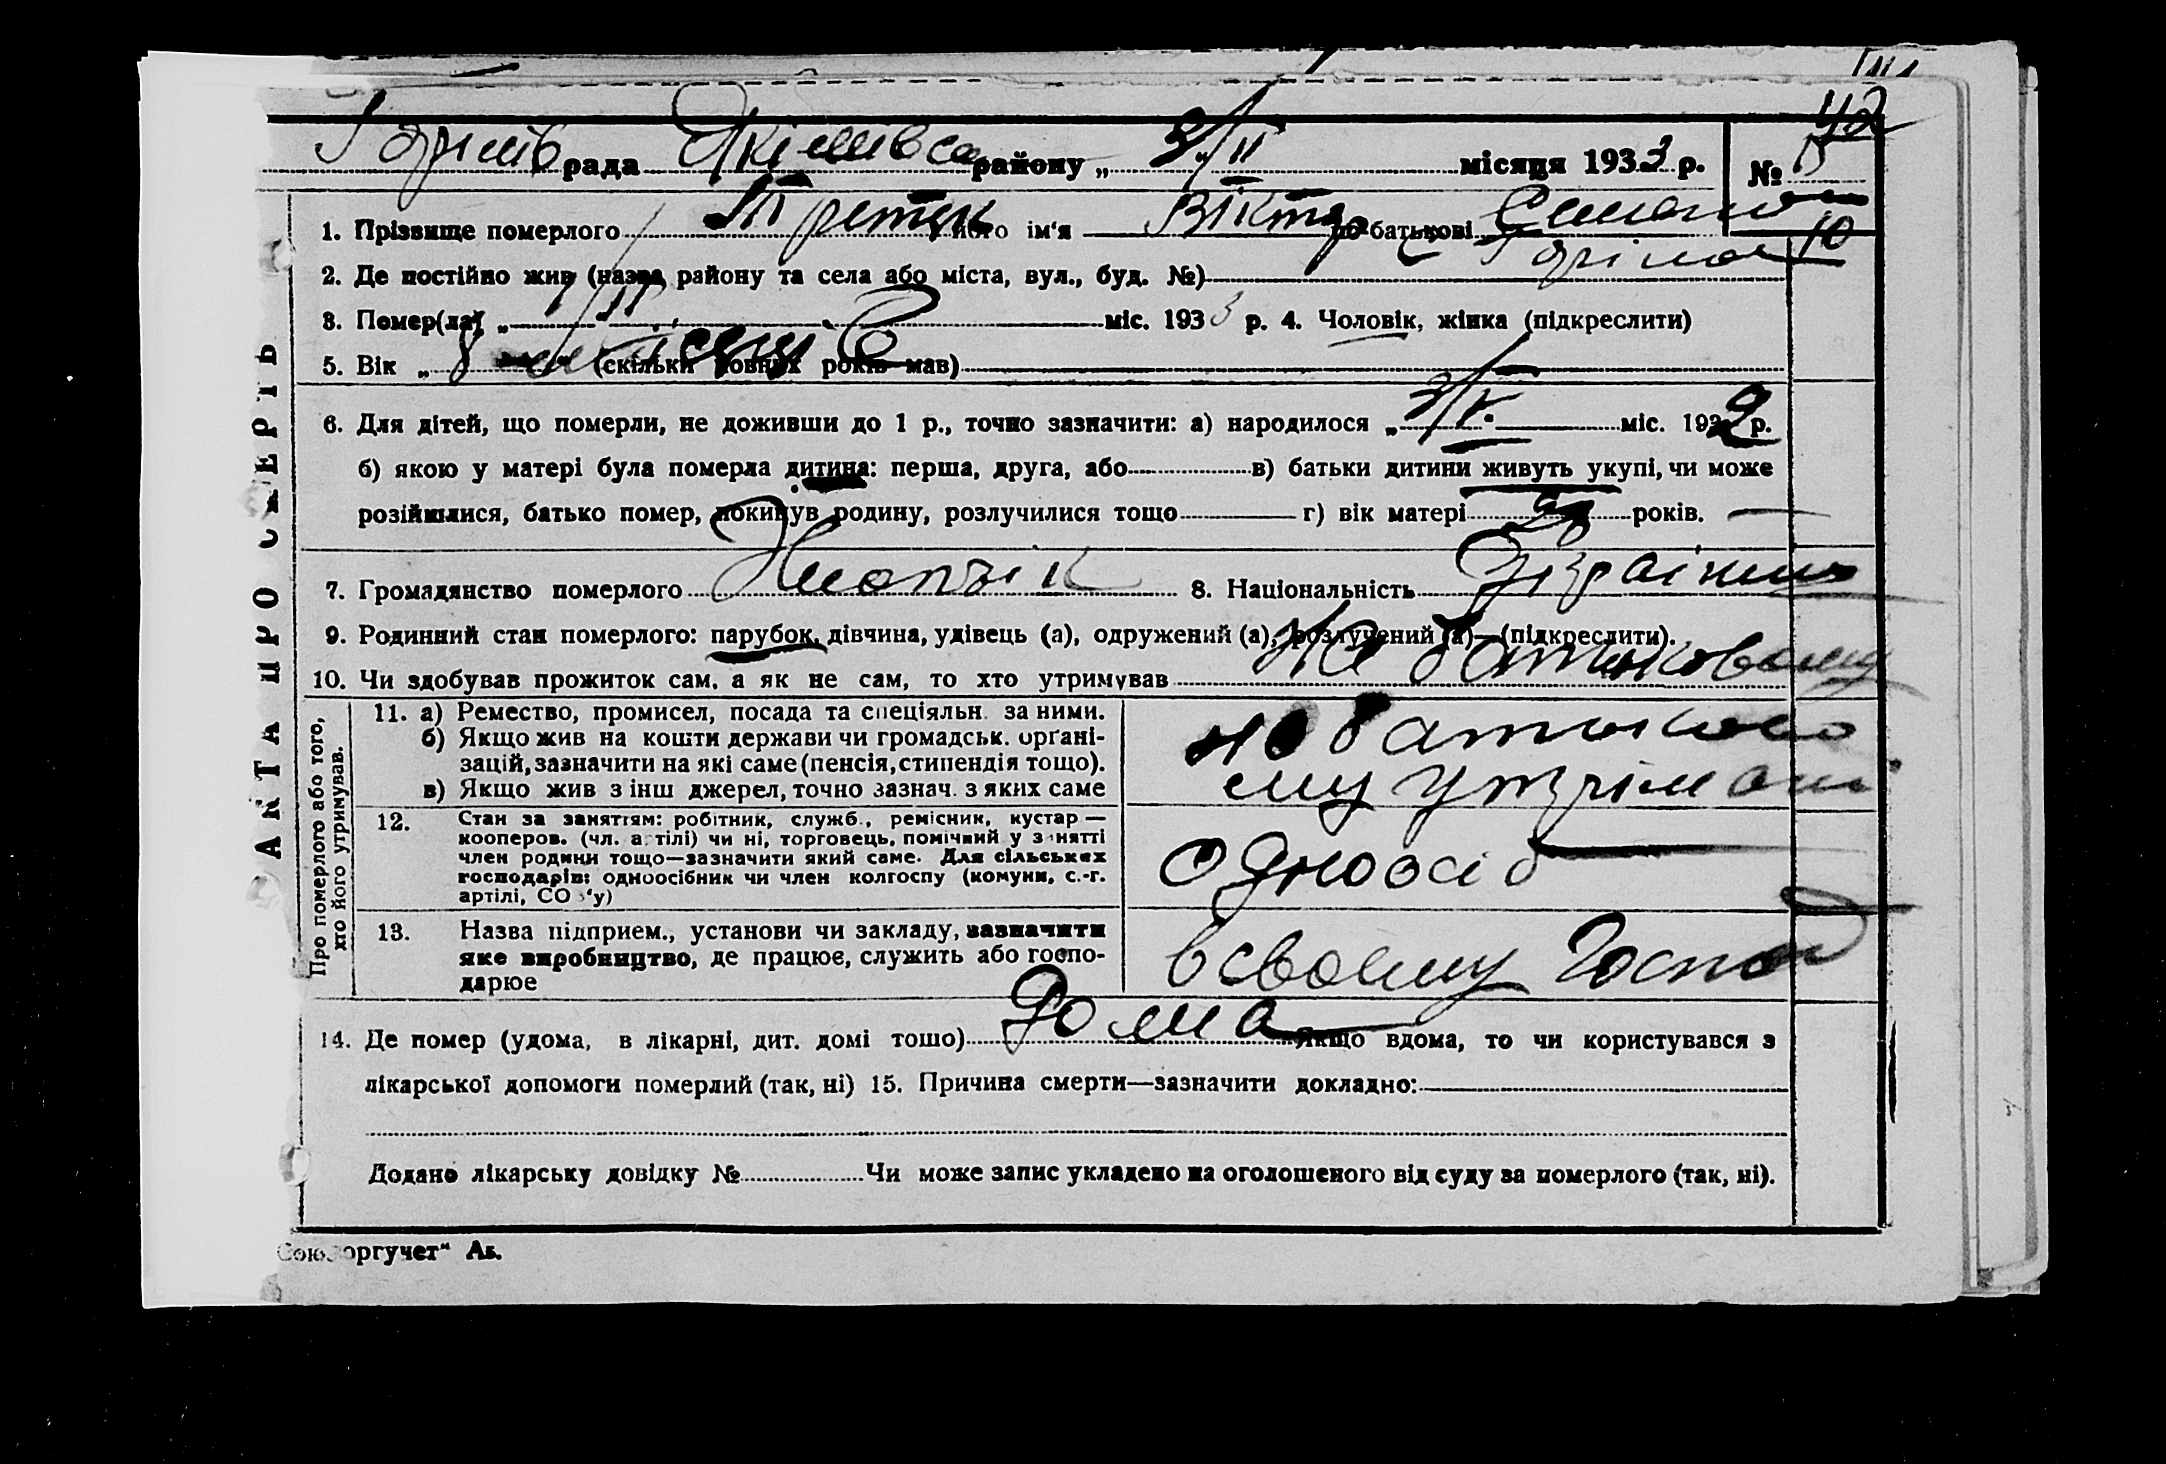 42
рада Якімівсь району „ 3/II місяця 1933 р. №
1. Прізвище померлого Третяк його ім'я Віктор по батькові Семано 10
2. Де постійно жив (назва району та села або міста, вул., буд. №)
3. Помер(ла) „ 1/II міс. 1933 р. 4. Чоловік, жінка (підкреслити)
5. Вік „ 8 місяців (скільки повних років мав)
6. Для дітей, що померли, не доживши до 1 р., точно зазначити: а) народилося „ 3/V міс. 1932 р.
б) якою у матері була померла дитина: перша, друга, або в) батьки дитини живуть укупі, чи може
розійшлися, батько помер, покинув родину, розлучилися тощо г) вік матері років.
7. Громадянство померлого 8. Національність Українець
9. Родинний стан померлого: парубок, дівчина, удівець (а), одружений (а), розлучений (а)—(підкреслити).
10. Чи здобував прожиток сам, а як не сам, то хто утримував На батьковому
АКТ А ПРО СМЕРТЬ
Про померлого або того, хто його утримував.
11. а) Ремество, промисел, посада та спеціяльн. за ними.
б) Якщо жив на кошти держави чи громадськ. органі-
зацій, зазначити на які саме (пенсія, стипендія тощо).
в) Якщо жив з інш джерел, точно зазнач. з яких саме
на батьково
му утрімані
12. Стан за заняттям: робітник, служб., ремісник, кустар —
кооперов. (чл. артілі) чи ні, торговець, помічний у занятті
член родини тощо—зазначити який саме. Для сільських
господарів: одноосібник чи член колгоспу (комуни, с.-г.
артілі, СОЗ'у)
одноосіб
13. Назва підприєм., установи чи закладу, зазначити
яке виробництво, де працює, служить або госпо-
дарює
в своему господ
14. Де помер (удома, в лікарні, дит. домі тощо) Дома Якщо вдома, то чи користувався з
лікарської допомоги померлий (так, ні) 15. Причина смерти—зазначити докладно:
Додано лікарську довідку № Чи може запис укладено на оголошеного від суду за померлого (так, ні).
Союзоргучет“ Ак.